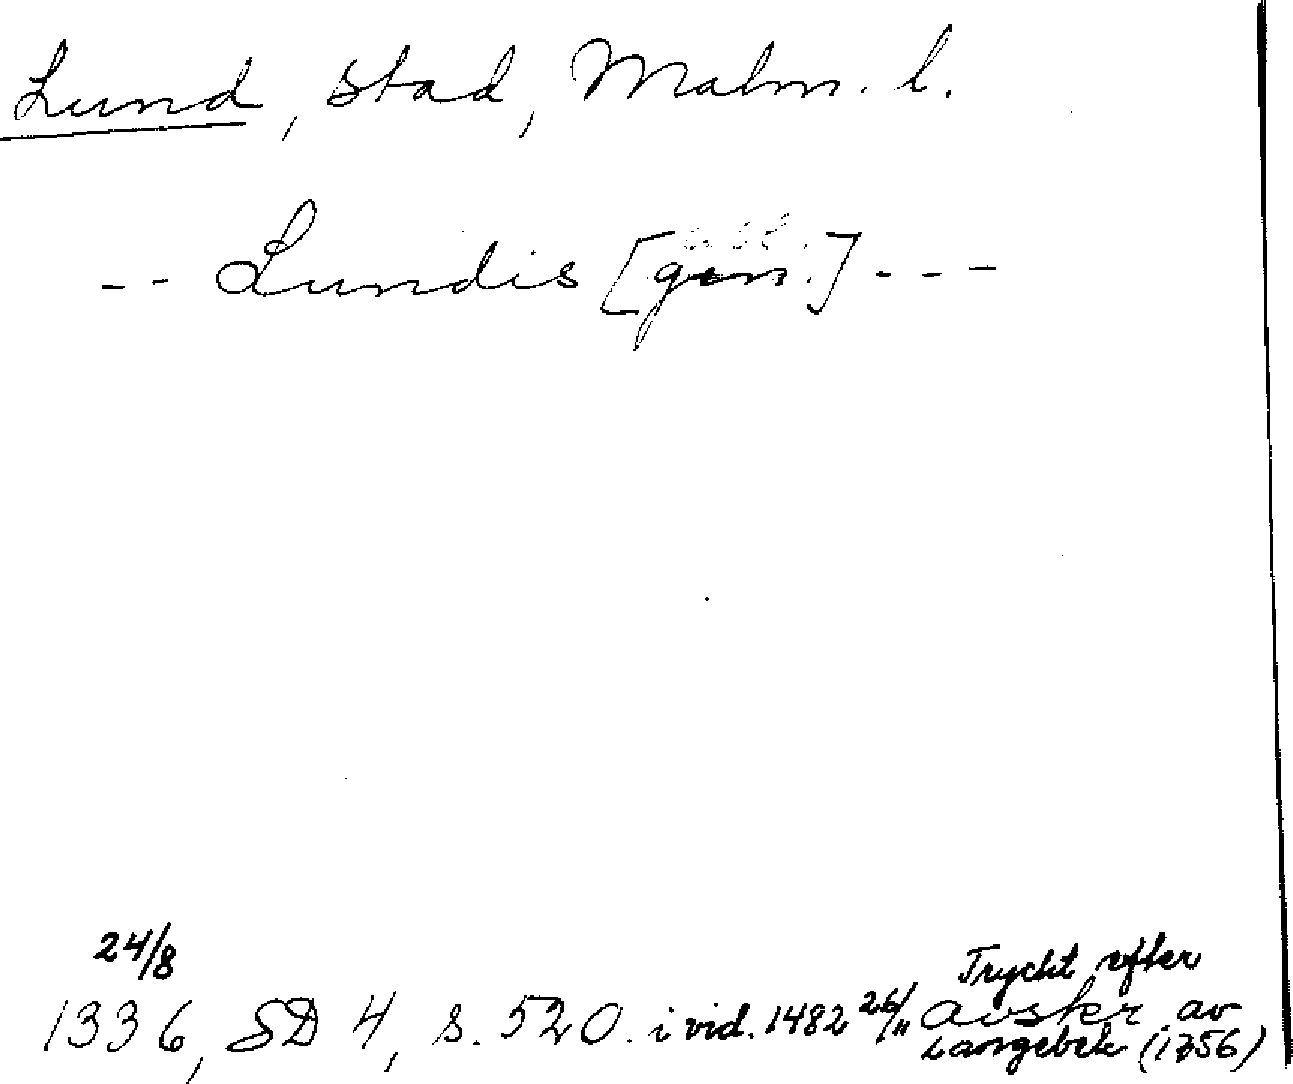 Lund, stad, Malm. l.
abl.
-- Lundis [gen.] ---
24/8
Tryckt efter
1336, SD 4, s. 520. i vid. 1482 26/11 avskr. av
Langebek (1756)